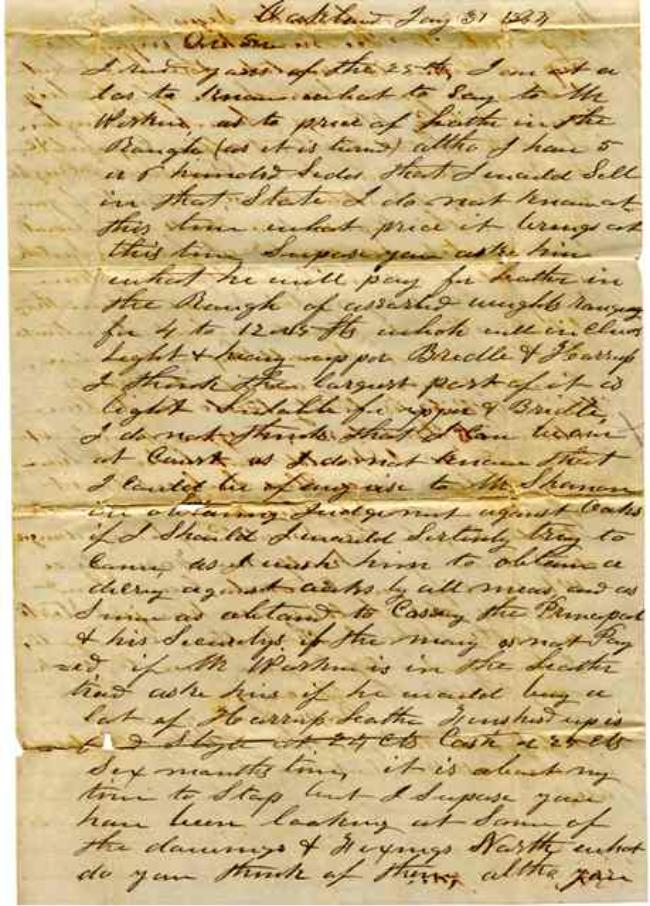 Oakland Jany 31
Dear Sir
I recd yours of the 25th, I am at a
los to know what to Say to Mr
Workin as to price of leathe in the
Rough (as it is turnd) altho I have 5
or 6 hundred Sides that I would Sell
in that State I do not know at
this time what price it brings at
this time Supose you aske him
what he will pay for leathe in
the Rough of assorted weights ranging
for 4 to 12 lbs which will
Light & heavy upper Bridle & Harrup
I think the largest part of it is
light Sutable for upper & Bridle,
I do not think that I Can be
at Court as I do not know that
I could be of any use to Mr Shanon
in obtaining Judgement against Oaks
if I Should I would Sertinly try to
Come, as I wish him to obtain a
decrey against oaks by all means and as
Soon as obtand to Cassey the Principal
& his Securitys if the money is not Pay
ed if Mr Workin is in the leathe
trad aske him if he would buy a
lot of Harrup leathe Finshed up
at 24 cts Cash or 25 cts
Six months time, it is about my
time to Stop but I Supose you
have been looking at Some of
the dowings & Fixings North, what
do you think of them, altho you